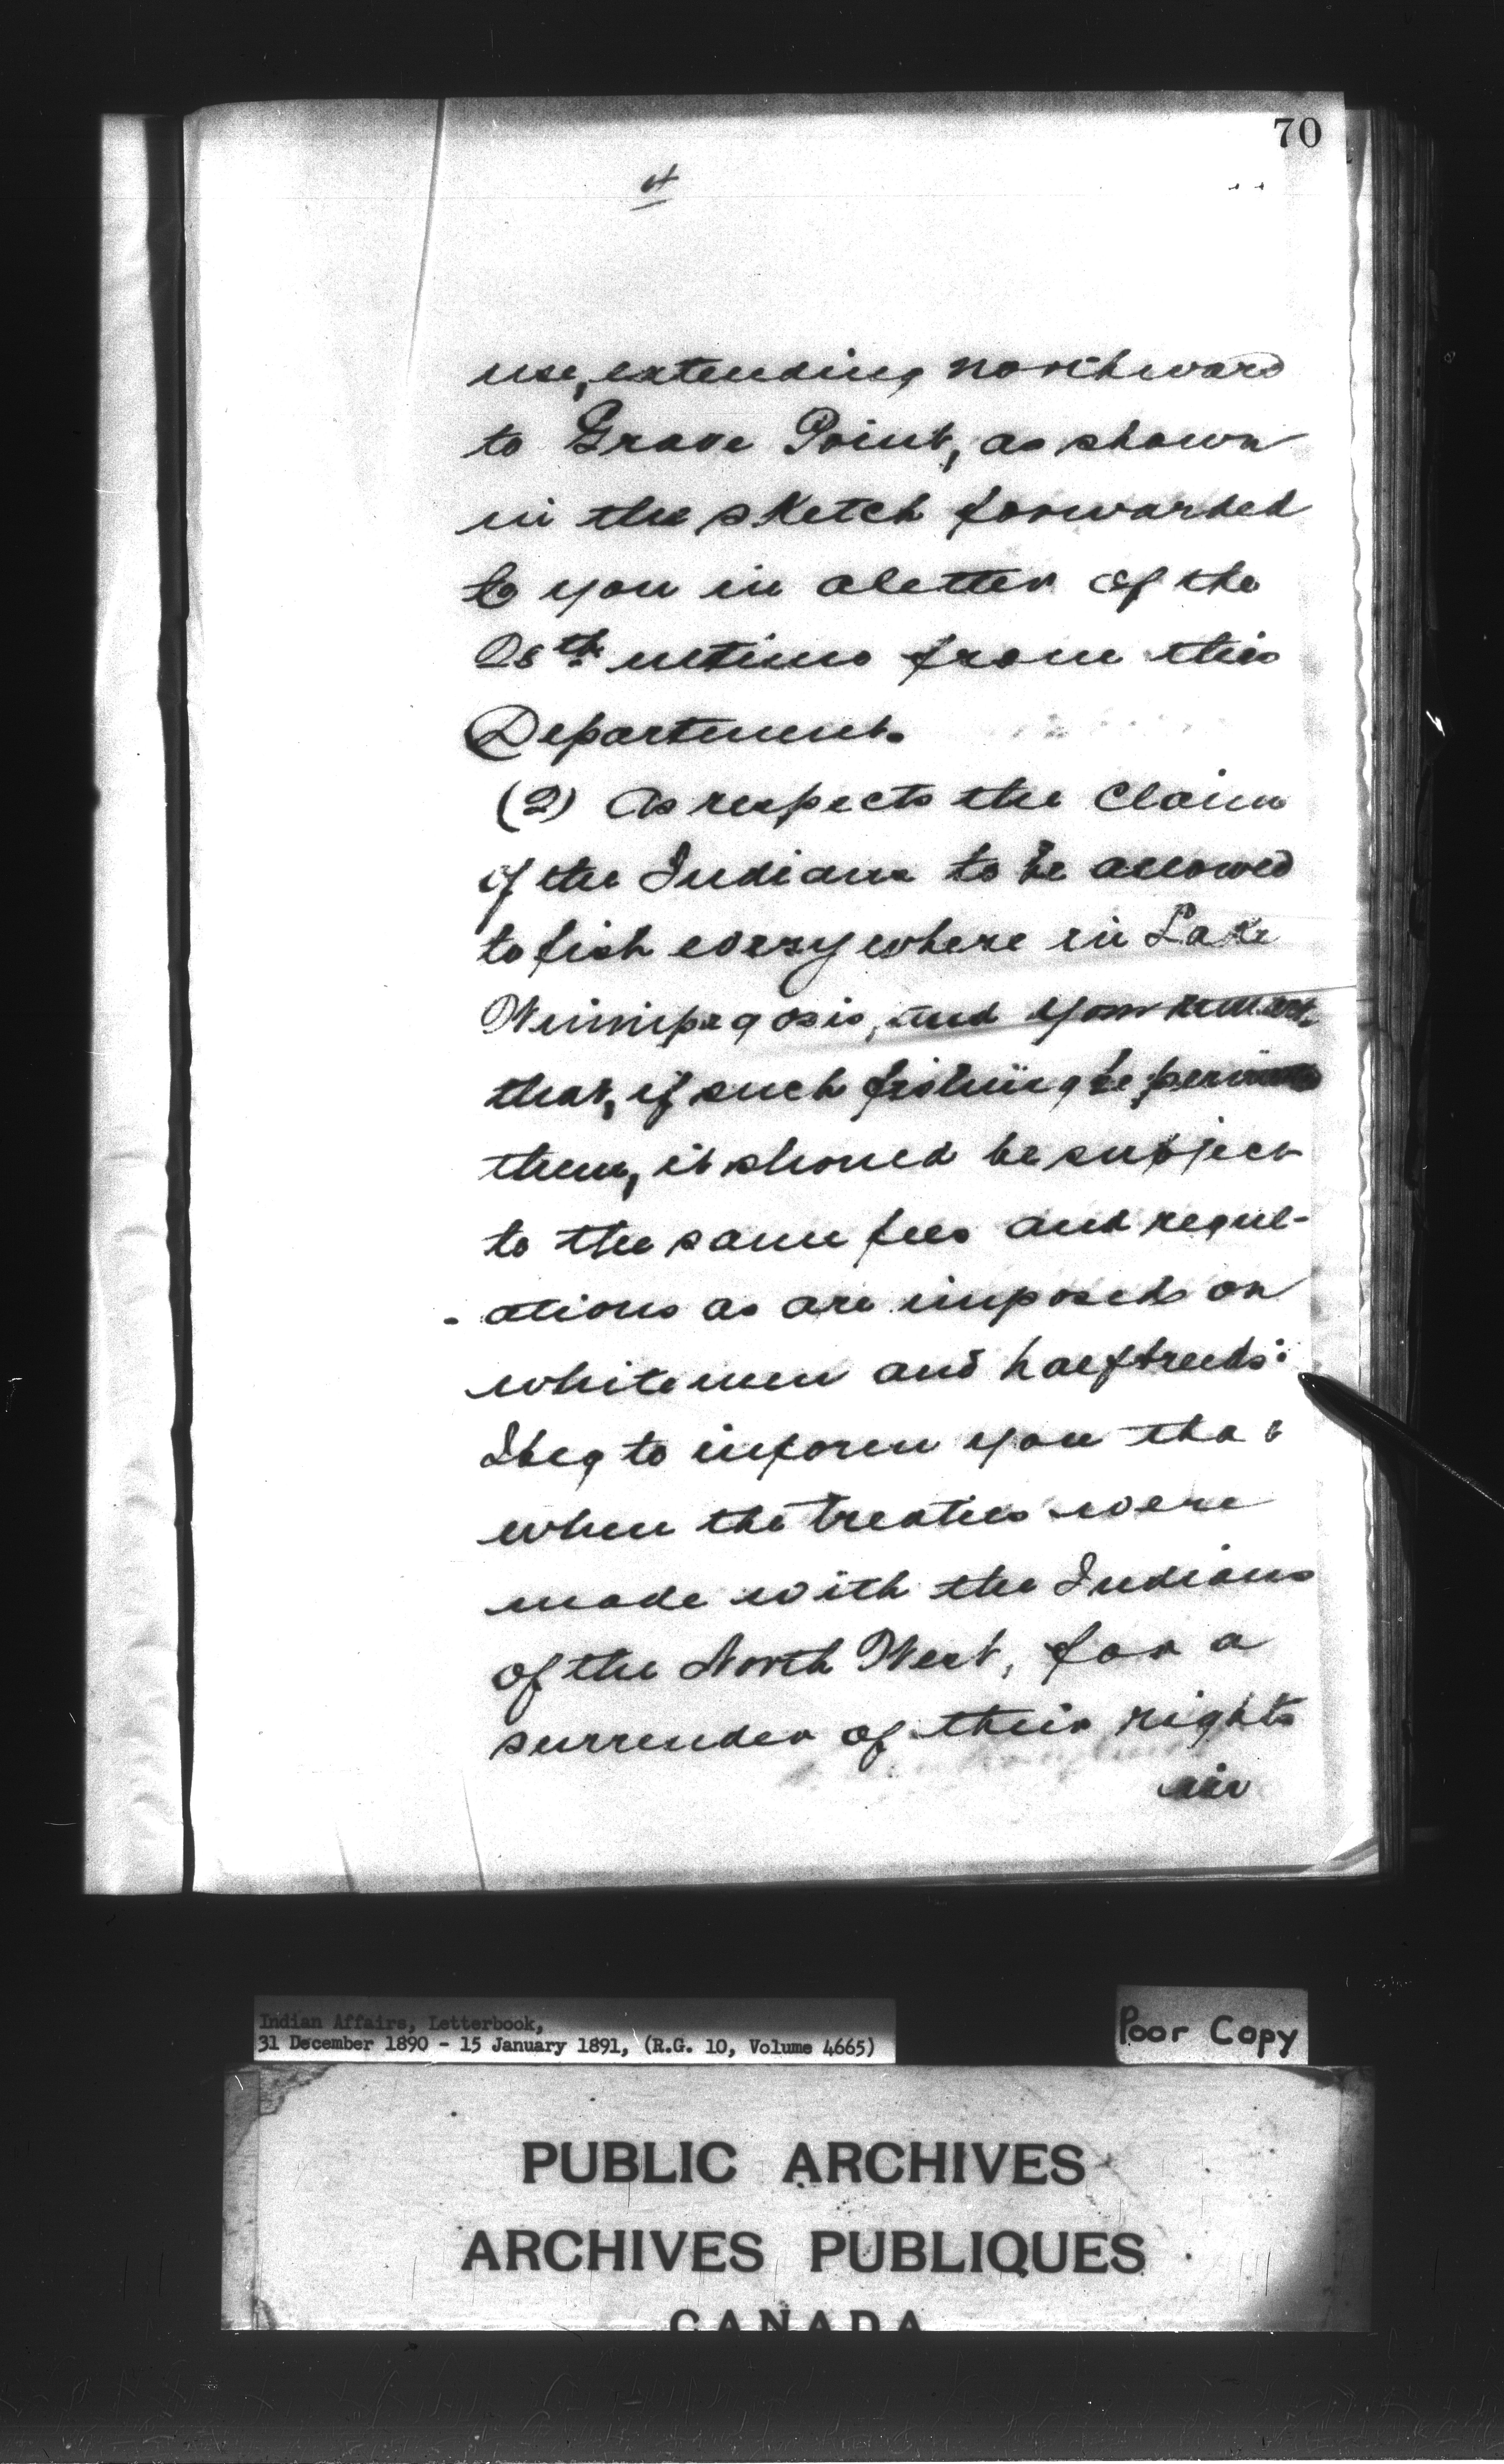 70
use, extending northward
to Grave Point, as shown
in the sketch forwarded
to you in a letter of the
28th ultimo from this
Department.
(2) As respects the claim
of the Indians to be allowed
to fish everywhere in Lake
Winnipegosis, and your remark
that, if such fishing be
them, it should be subject
to the same fees and regul-
- ations as are imposed on
white men and halfbreeds:
I beg to inform you that
when the treaties were
made with the Indians
of the North West, for a
surrender of their rights
in
Indian Affairs, Letterbook,
31 December 1890 - 15 January 1891, (R.G. 10, Volume 4665)
Poor Copy
PUBLIC ARCHIVES
ARCHIVES PUBLIQUES
CANADA